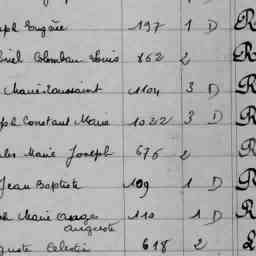 ph Eugène 197 1 D R
riel Colomban Louis 862 2 R
Marie Toussaint 1104 3 D R
ph Constant Marie 1022 3 D R
les Marie Joseph 676 2 R
Jean Baptiste 109 1 D R
h Marie Ange 110 1 D R
Auguste
guste Celestin 618 2